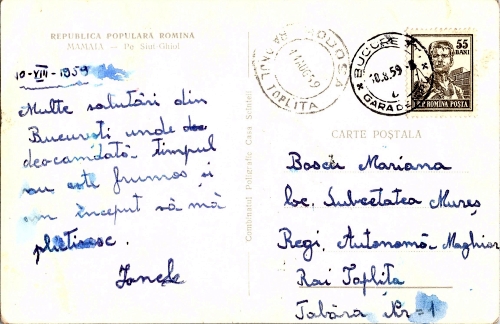 REPUBLICA POPULARA ROMINA
MAMAIA — Pe Siut-Ghiol
10-VIII-1959
Multe salutări din
București unde de
deocamdată timpul
nu este frumos și
am început să mă
plictisesc.
Combinatul Poligrafic Casa Scînteii
TOPLITA
BUCUREȘTI
10.8.59
GARA DE
55
BANI
R.P. ROMINA POSTA
CARTE POȘTALĂ
Boscu Mariana
loc. Subcetatea Mureș
Regi. Autonomă Maghiar
Rai Toplița
Tabăra Nr-1